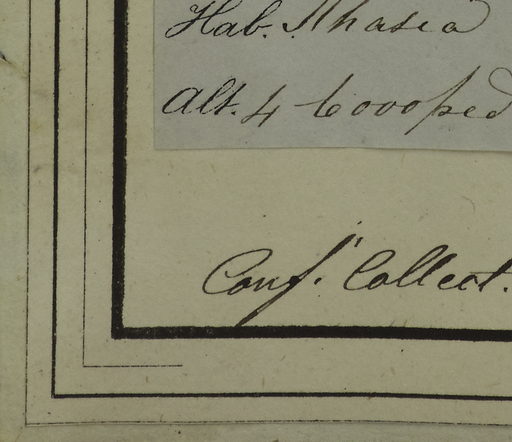 Hab. Khasia
Alt. 4 6000 ped
Conf. Collect.